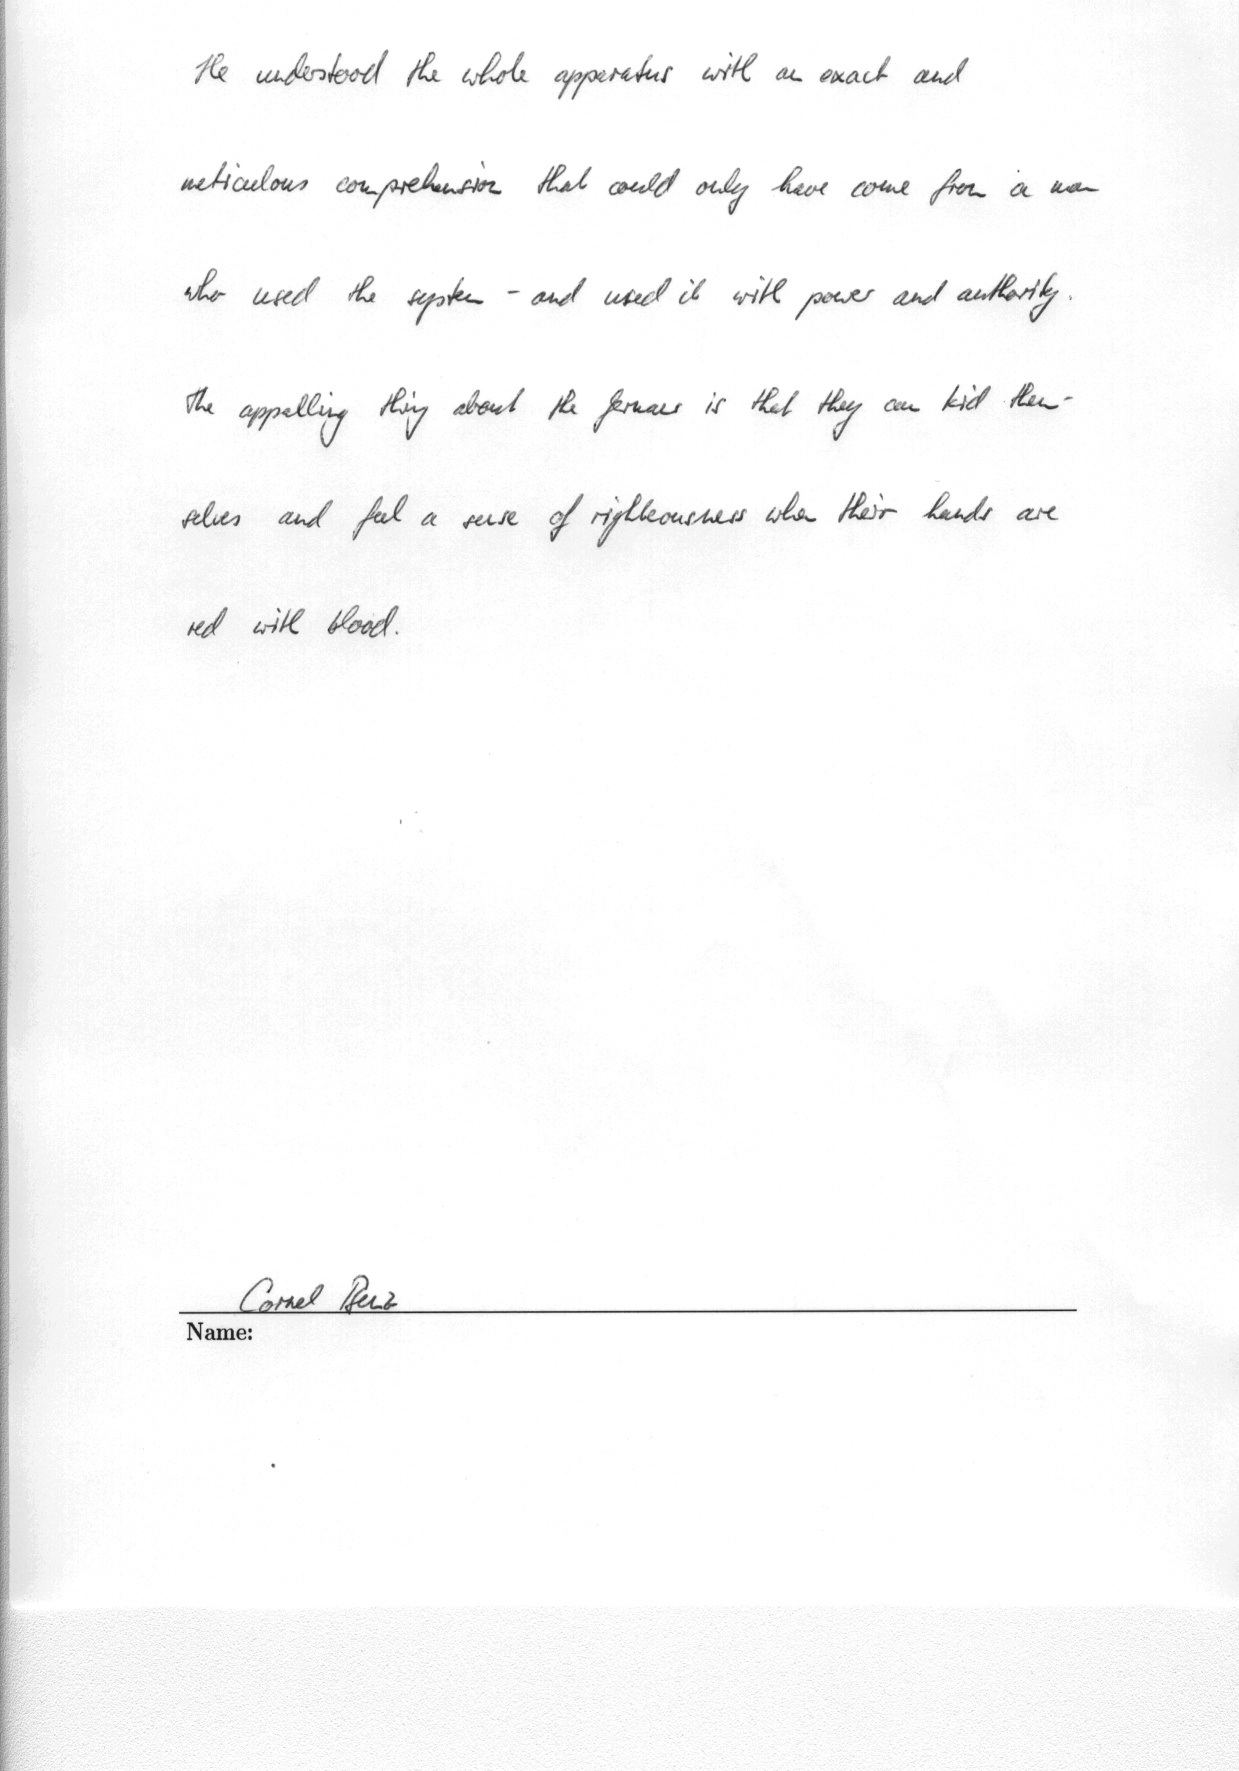 He understood the whole apparatus with an exact and
meticulous comprehension that could only have come from a man
who used the system - and used it with power and authority.
The appalling thing about the Germans is that they can kid them-
selves and feel a sense of righteousness when their hands are
red with blood.
Cornel
Name: